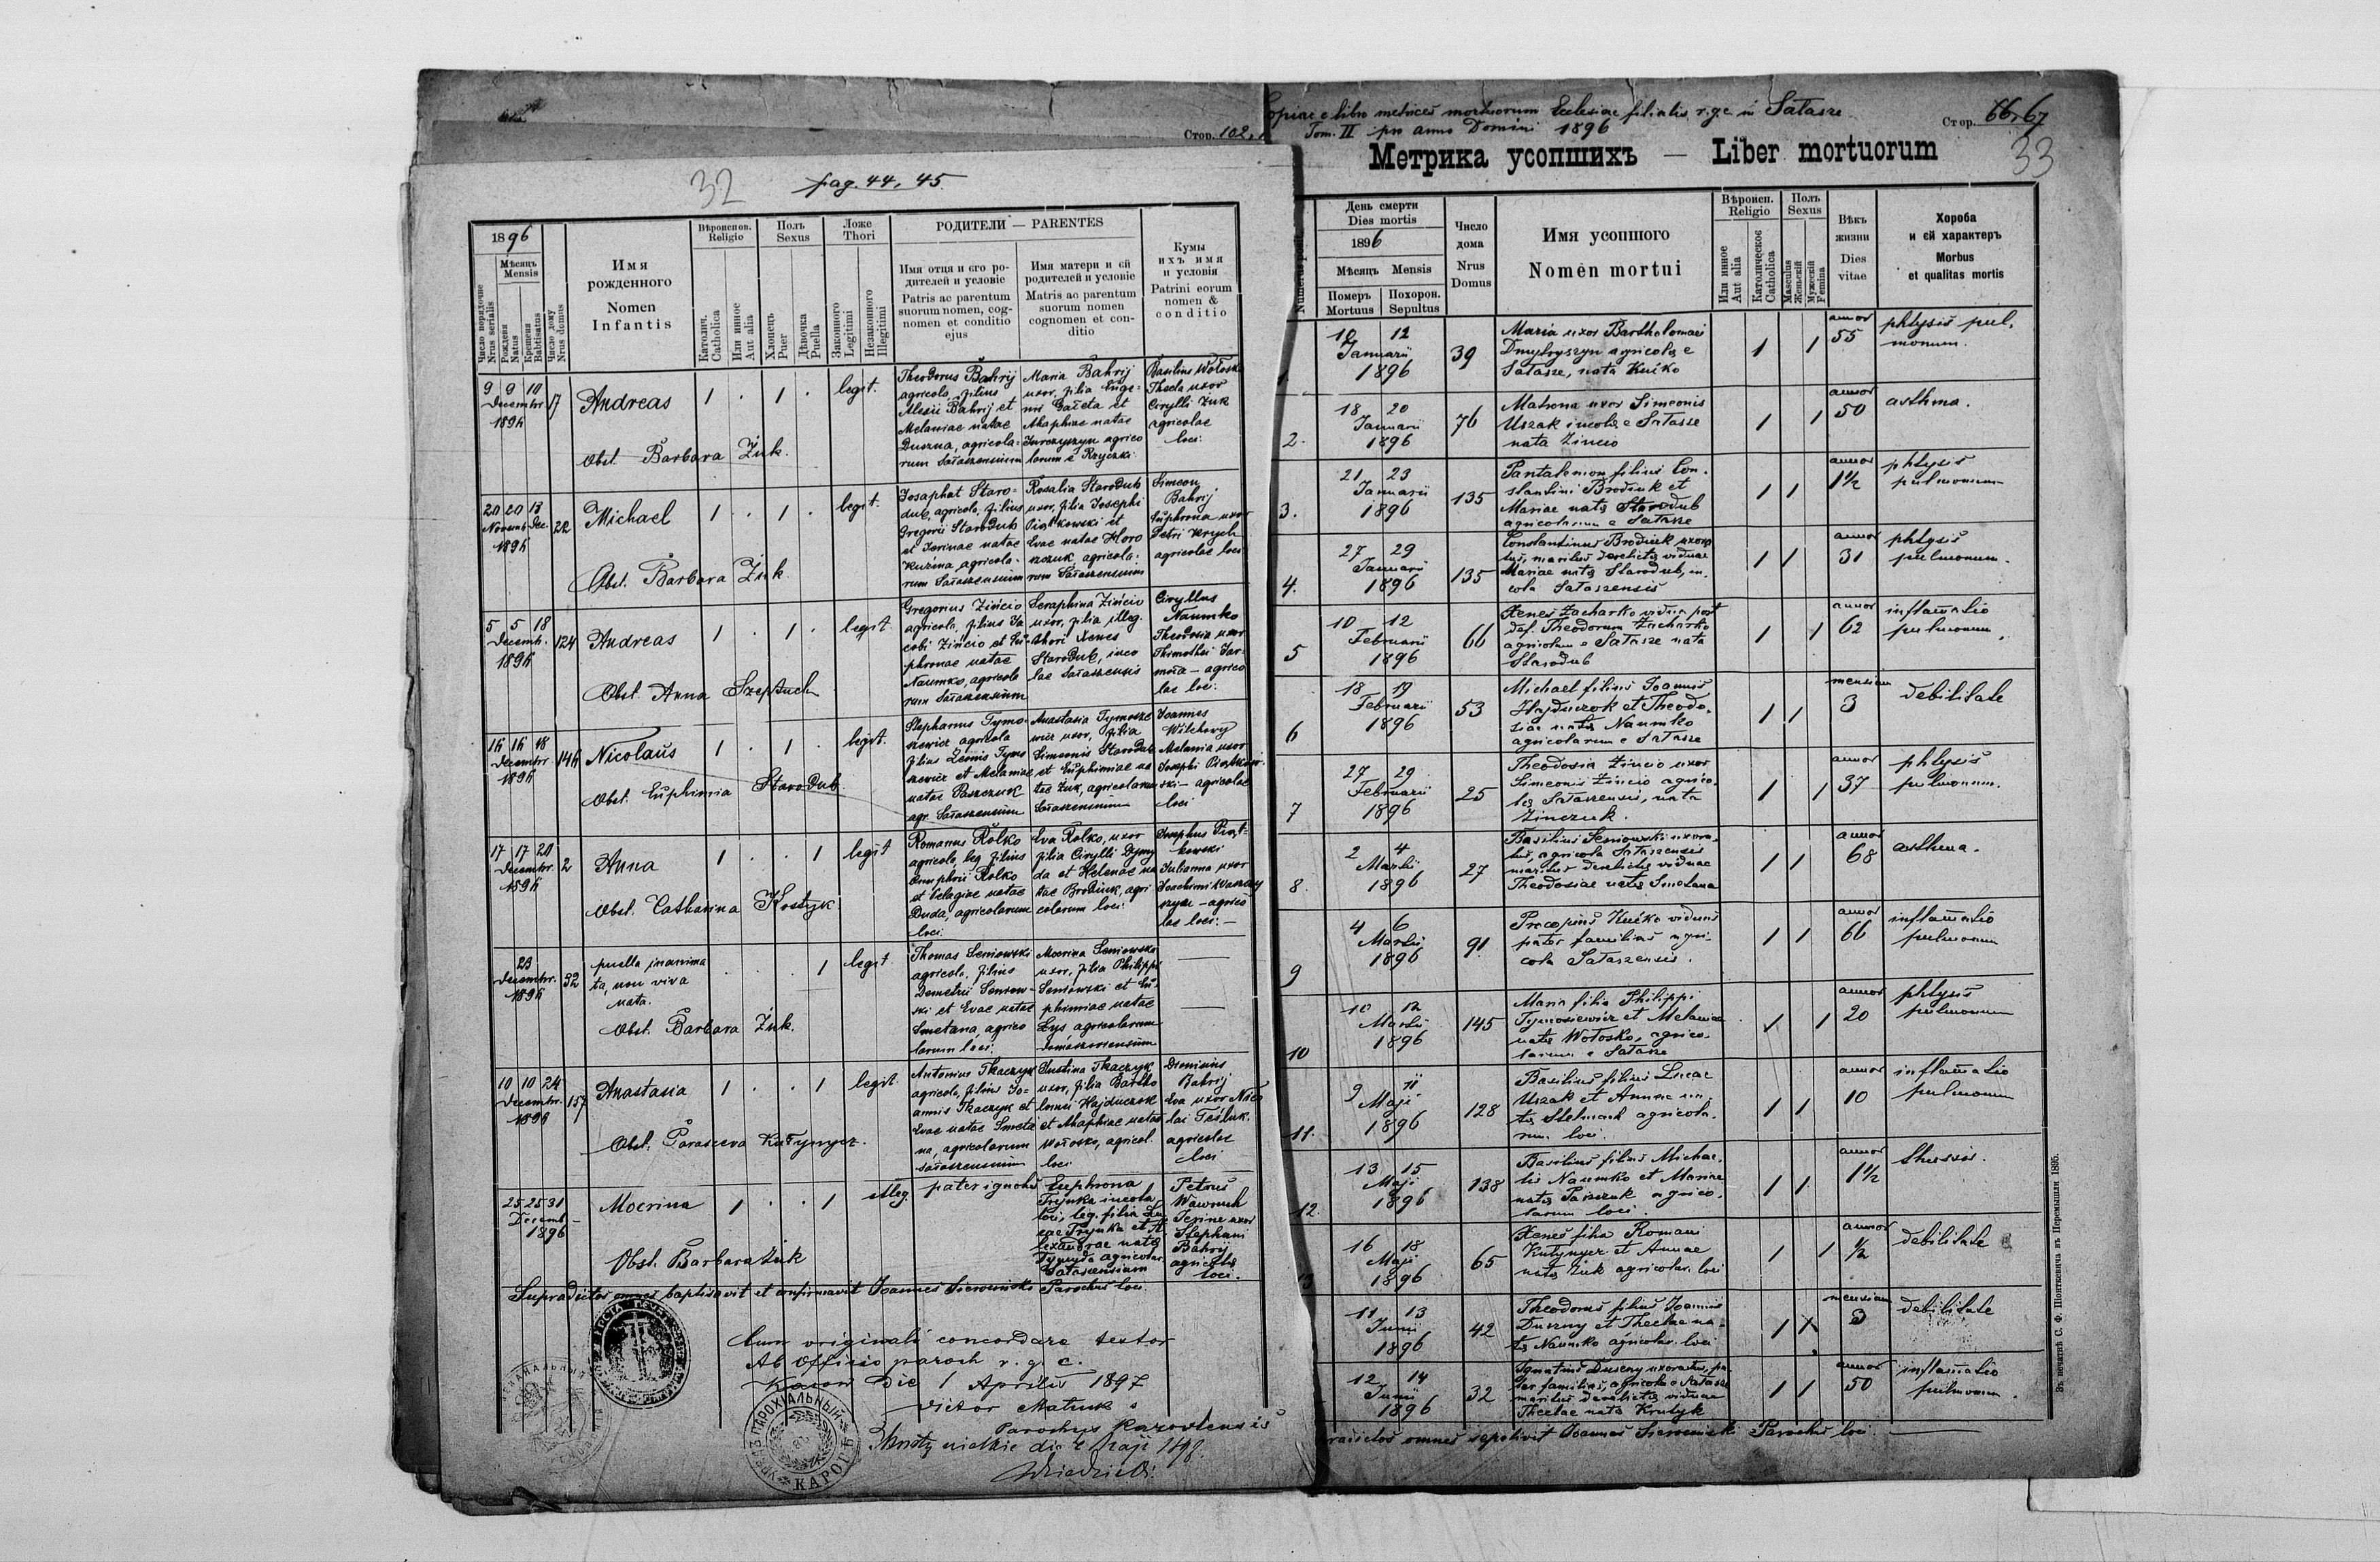 Стор. 102
32
pag. 44, 45.
1896
Мѣсяць
Mensis
Число порядочне
Nrus serialis
Рожденя
Natus
Крещеня
Babtisatus
Число дому
Nrus domus
Имя
рожденного
Nomen
Infantis
Вѣроиспов.
Religio
Католич.
Catholica
Или инное
Aut alia
Полъ
Sexus
Хлопець
Puer
Дѣвочка
Puella
Ложе
Thori
Законного
Legitimi
Незаконного
Illegitimi
РОДИТЕЛИ — PARENTES
Имя отця и его ро-
дителей и условіе
Patris ac parentum
suorum nomen, cog-
nomen et conditio
ejus
Имя матери и ей
родителей и условіе
Matris ac parentum
suorum nomen
cognomen et con-
ditio
Кумы
ихъ имя
и условія
Patrini eorum
nomen &
conditio
9 9 10
Decembr.
1896
17
Andreas
1 . 1 .
legit.
Obst. Barbara Żuk.
Theodorus Bahrij
agricola, filius
Alexii Bahrij et
Melaniae natae
Duszna, agricola-
rum Sałaszensium
Maria Bahrij
uxor, filia Euge-
nii Gaceta et
Ahaphiae natae
Jurczyszyn agrico
larum e Rzyczki
Basilius Wołosko
Thecla uxor
Cirylli Żuk
agricolae
loci.
20 20 13
Novemb. Dec.
1896
22
Michael
1 . 1 .
legit.
Obst. Barbara Żuk.
Josaphat Staro-
dub, agricola, filius
Gregorii Starodub
et Irinae natae
Kuzma, agricola-
rum Sałaszensium
Rosalia Starodub
uxor, filia Josephi
Piątkowski et
Evae natae Horo
szczuk agricola-
rum Sałaszensium
Simeon
Bahrij
Euphrona uxor
Petri Krych
agricolae loci
5 5 18
Decemb.
1896
124
Andreas
1 . 1 .
legit
Obst. Anna Szeptuch
Gregorius Zińcio
agricola, filius Ja
cobi Zińcio et Eu-
phronae natae
Naumko, agricola
rum Sałaszensium
Seraphina Zińcio
uxor, filia illeg.
thori Xenes
Starodub, inco
lae Sałaszensis
Ciryllus
Naumko
Theodosia uxor
Thimothei
agrico
lae loci.
16 16 18
Decembr.
1896
146
Nicolaus
1 . 1 .
legit.
Obst. Euphimia Starodub
Stephanus Tymo-
szewicz agricola
filius Leonis Tymo
szewicz et Melaniae
natae Paszczuk
agr. Sałaszensium
Anastasia Tymosze
wicz uxor, filia
Simeonis Starodub
et Euphimiae na
tae Żuk, agricolarum
Sałaszensium
Joannes
Witchowy
Melania uxor
Josephi Piątkow-
ski — agricolae
loci
17 17 20
Decembr.
1896
2
Anna
1 . . 1
legit
Obst. Catharina Kostyk.
Romanus Rolko
agricola, leg. filius
Onuphrii Rolko
et Pelagiae natae
Duda, agricolarum
loci.
Eva Rolko, uxor
filia Cirylli Dymy
da et Helenae na
tae Brodiuk, agri
colarum loci.
Josephus Piąt-
kowski
Julianna uxor
Joachimi
agrico
lae loci. —
23
Decembr.
1896
32
puella inanima
ta, non viva
nata.
. . . 1
legit
Obst. Barbara Żuk.
Thomas Seniowski
agricola, filius
Demetrii Seniow-
ski et Evae natae
Smetana, agrico
larum loci.
Mocrina Seniowski
uxor, filia Philippi
Seniowski et Eu-
phimiae natae
Łys agricolarum
10 10 24
Decembr.
1896
157
Anastasia
1 . . 1
legit.
Obst. Parasceva Kutynycz.
Antonius Tkaczyk
agricola, filius Jo-
annis Tkaczyk et
Evae natae Smeta
na, agricolarum
Sałaszensium
Justina Tkaczyk
uxor, filia Bartho
lomei Hajduczok
et Ahaphiae natae
Wołosko, agricol.
loci
Dionisius
Bahrij
Eva uxor Nico
lai
agricolae
loci
25 25 31
Decemb.
1896
Mocrina
1 . . 1
illeg.
Obst. Barbara Żuk
pater ignotus
Euphrona
Trynka incola
loci, leg. filia Lu
cae Trynka et A
lexandrae natae
Dymyda agricolar.
Sałaszensium
Petrus
Wawruch
Irine uxor
Stephani
Bahrij
agricolae
loci.
Supradictos omnes baptisavit et confirmavit Joannes Sierociński Parochus loci.
Cum originali concordare testor
Ab Officio paroch r. g. c.
Karow Die 1 Aprilis 1897
Victor Matiuk
Parochus Karoviensis
die 4 Maji 1898.
ПАРОХІАЛЬНЫЙ
КАРОГѢ
Copiae e libro metrices mortuorum Ecclesiae filialis r. g. c. in Sałasze
Tom. II pro anno Domini 1896
Стор. 66, 67
33
Метрика усопшихъ — Liber mortuorum
Numerus
День смерти
Dies mortis
1896
Мѣсяць Mensis
Померъ
Mortuus
Похорон.
Sepultus
Число
дома
Nrus
Domus
Имя усопшого
Nomen mortui
Вѣроисп.
Religio
Или инное
Aut alia
Католическое
Catholica
Полъ
Sexus
Masculus
Женьскій
Мужескій
Femina
Вѣкъ
жизни
Dies
vitae
Хороба
и ей характеръ
Morbus
et qualitas mortis
1.
10 12
Januarii
1896
39
Maria uxor Bartholomaei
Dmytryszyn agricolae e
Sałasze, nata Kućko
1 1
annor
55
phtysis pul-
monum.
2.
18 20
Januarii
1896
76
Matrona uxor Simeonis
Uszak incolae e Sałasze
nata Zincio
1 1
annor
50
asthma.
3.
21 23
Januarii
1896
135
Pantalemon filius Con-
stantini Brodiuk et
Mariae natae Starodub
agricolarum e Sałasze
1 1
annor
1½
phtysis
pulmonum
4.
27 29
Januarii
1896
135
Constantinus Brodiuk uxora
tus, maritus derelictae viduae
Mariae natae Starodub, in-
cola Sałaszensis
1 1
annor
31
phtysis
pulmonum.
5
10 12
Februarii
1896
66
Xenes Zacharko vidua post
def. Theodorum Zacharko
agricolam e Sałasze nata
Starodub
1 1
annor
62
inflamatio
pulmonum.
6
18 19
Februarii
1896
53
Michael filius Joannis
Hajduczok et Theodo-
siae natae Naumko
agricolarum e Sałasze
1 1
mensium
3
debilitate
7
27 29
Februarii
1896
25
Theodosia Zincio uxor
Simeonis Zincio agrico-
lae Sałaszensis, nata
Zinczuk.
1 1
annor
37
phtysis
pulmonum.
8.
2 4
Martii
1896
27
Basilius Seniowski uxora-
tus, agricola Sałaszensis
maritus derelictae viduae
Theodosiae natae Smetana
1 1
annor
68
asthma.
9
4 6
Martii
1896
91
Procopius Kućko viduus
pater familias agri-
cola Sałaszensis.
1 1
annor
66
inflamatio
pulmonum
10
10 12
Martii
1896
145
Maria filia Philippi
Tymosiewicz et Melaniae
natae Wołosko, agrico-
larum e Sałasze
1 1
annor
20
phtysis
pulmonum
11.
9 11
Maji
1896
128
Basilius filius Lucae
Uszak et Annae na-
tae Stelmach agricola-
rum loci.
1 1
annor
10
inflamatio
pulmonum
12.
13 15
Maji
1896
138
Basilius filius Michae-
lis Naumko et Mariae
natae Paszczuk agrico-
larum loci.
1 1
annor
1½
thussis.
13
16 18
Maji
1896
65
Xenes filia Romani
Kutynycz et Annae
natae Żuk agricolar. loci
1 1
annor
½
debilitate
11 13
Junii
1896
42
Theodorus filius Joannis
Duszny et Theclae na-
tae Naumko agricolar. loci
1 1
mensium
3
debilitate
12 14
Junii
1896
32
Ignatius Duszny uxoratus, pa-
ter familias, agricola e Sałasze
maritus derelictae viduae
Theclae natae Krutyk
1 1
annor
50
inflamatio
pulmonum.
omnes sepelivit Joannes Sierociński Parochus loci
Въ печатнѣ С. Ф. Піонткевича въ Перемышли 1895.